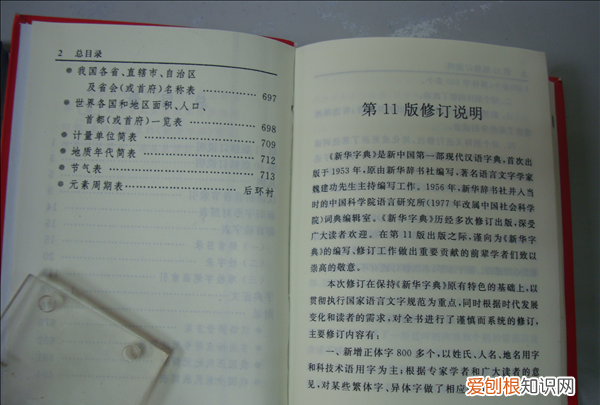 2 总目录
● 我国各省、直辖市、自治区
及省会(或首府)名称表 ……………… 697
● 世界各国和地区面积、人口、
首都(或首府)一览表 ……………… 698
● 计量单位简表 ……………… 709
● 地质年代简表 ……………… 712
● 节气表 ……………… 713
● 元素周期表 ……………… 后环衬
第 11 版修订说明
《新华字典》是新中国第一部现代汉语字典,首次出
版于 1953 年,原由新华辞书社编写,著名语言文字学家
魏建功先生主持编写工作。1956 年,新华辞书社并入当
时的中国科学院语言研究所(1977 年改属中国社会科学
院)词典编辑室。《新华字典》历经多次修订出版,深受
广大读者欢迎。在第 11 版出版之际,谨向为《新华字
典》的编写、修订工作做出重要贡献的前辈学者们致以
崇高的敬意。
本次修订在保持《新华字典》原有特色的基础上,以
贯彻执行国家语言文字规范为重点,同时根据时代发展
变化和读者的需求,对全书进行了谨慎而系统的修订,
主要修订内容有:
一、新增正体字 800 多个,以姓氏、人名、地名用字
和科技术语用字为主;根据专家学者和广大读者的意
见,对某些繁体字、异体字做了相应
爱刨根知识网